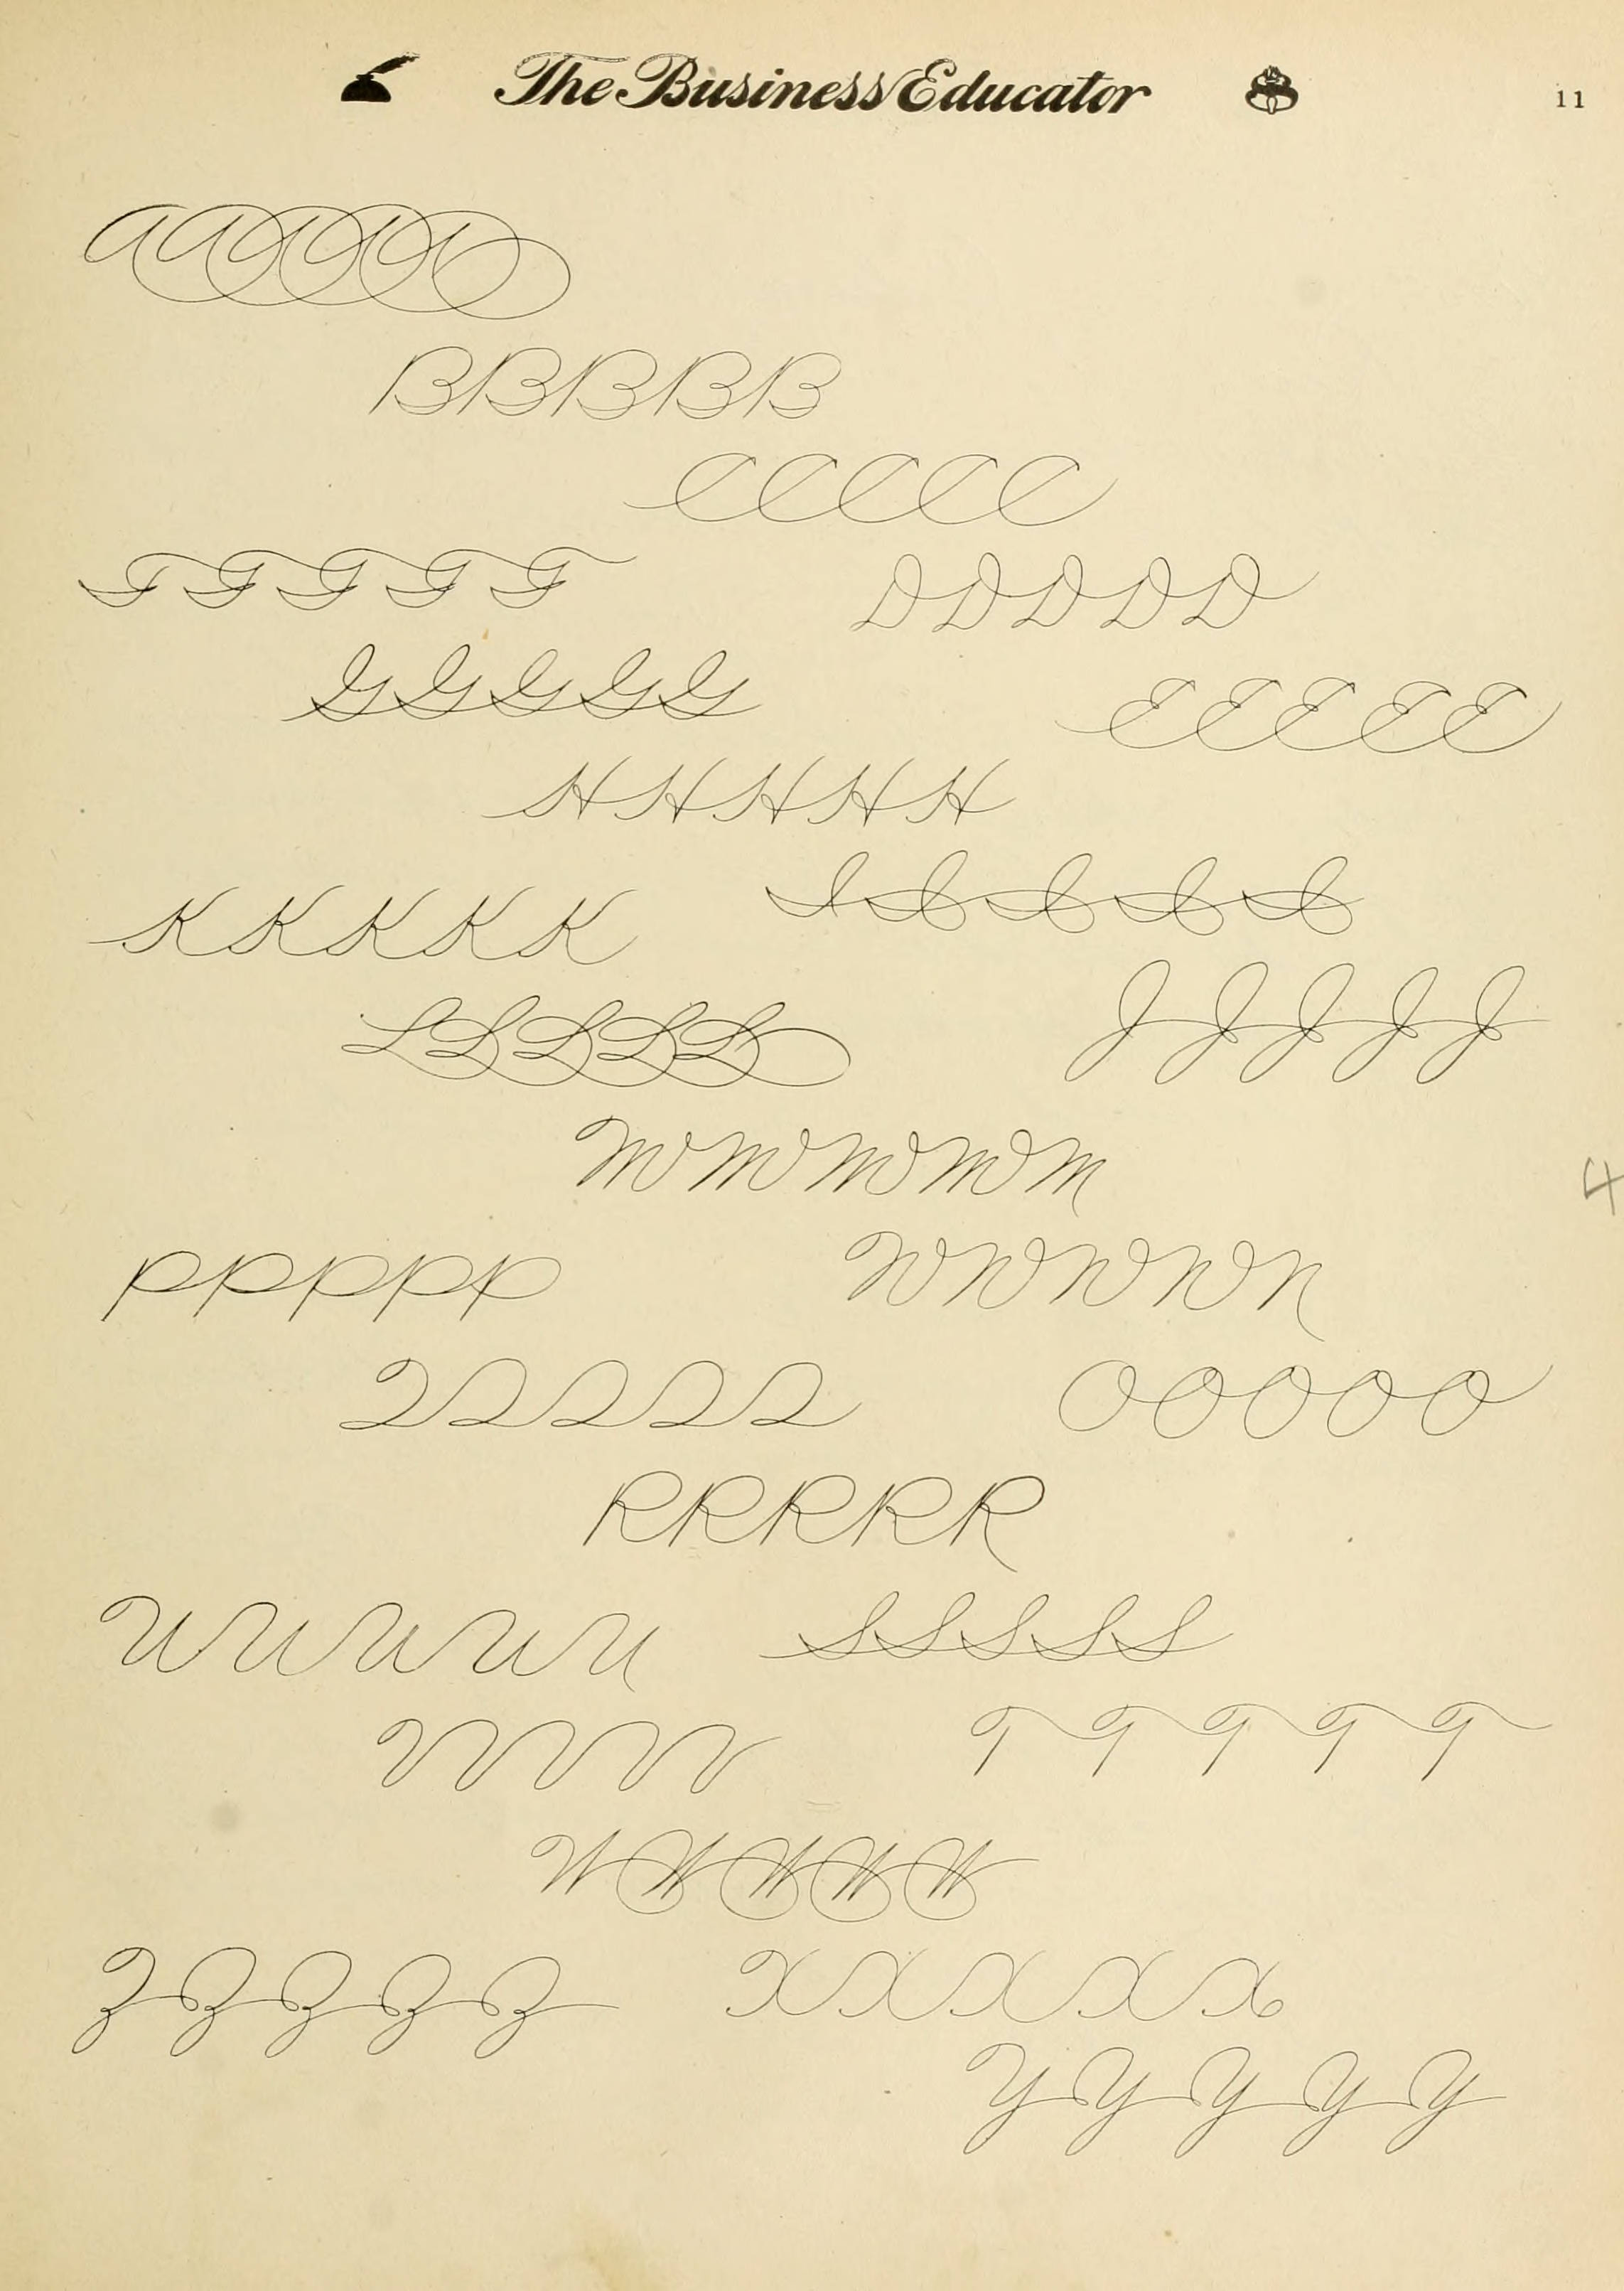 The Business Educator 11
A A A A A
B B B B B
C C C C C
F F F F F
D D D D D
G G G G G
E E E E E
H H H H H
I I I I I
K K K K K
J J J J J
L L L L L
M M M M M
4
P P P P P
N N N N N
Q Q Q Q Q
O O O O O
R R R R R
U U U U U
S S S S S
V V V V V
T T T T T
W W W W W
Z Z Z Z Z
X X X X X
Y Y Y Y Y